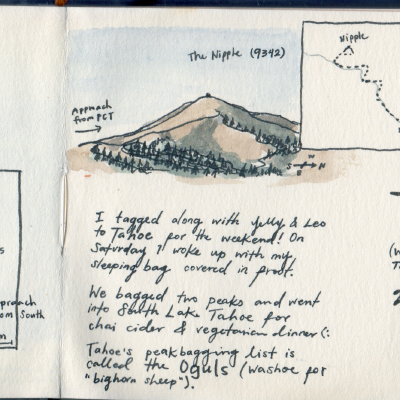 The Nipple (9342)
Nipple
Approach
from PCT
S N
I tagged along with Yelly & Leo
to Tahoe for the weekend! On
Saturday I woke up with my
sleeping bag covered in frost.
We bagged two peaks and went
into South Lake Tahoe for
chai cider & vegetarian dinner (:
Tahoe's peakbagging list is
called the Oguls (Washoe for
"bighorn sheep").
proach
om South